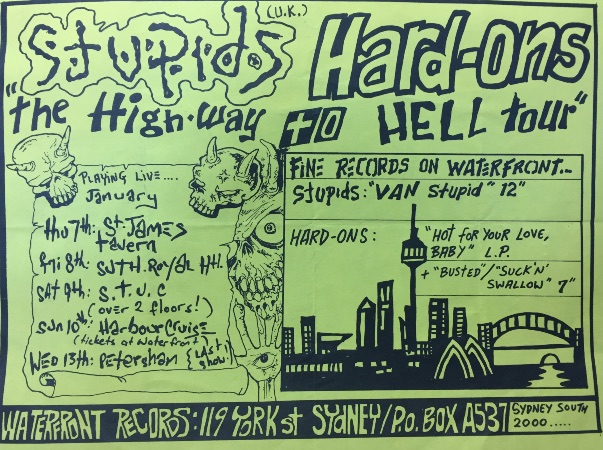 Stupids (U.K.) Hard-Ons
"the High-way to HELL tour"
PLAYING LIVE....
January
thu 7th: St. JAMES
tavern
fri 8th: SUTH. RoyAL Htl.
SAT 9th: S.T.U.C
(over 2 floors!)
SUN 10th: HarbourCruise
(tickets at Waterfront)
WED 13th: Petersham {LAST show!
FINE RECORDS ON WATERFRONT...
Stupids: "VAN Stupid" 12"
HARD-ONS: "HOT FOR YOUR LOVE,
BABY" L.P.
+ "BUSTED"/"SUCK 'N'
SWALLOW" 7"
WATERFRONT RECORDS: 119 YORK st SYDNEY/P.O. BOX A537
SYDNEY SOUTH
2000.....